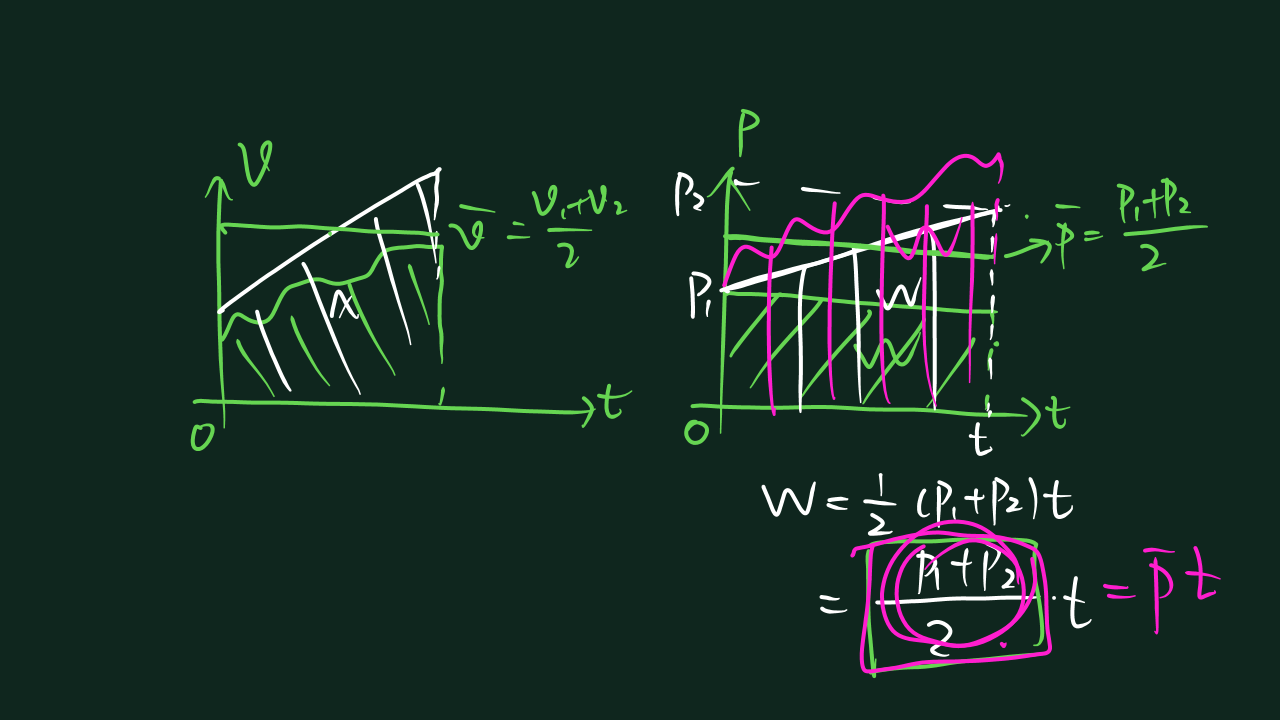 v
v̄ = (v₁+v₂)/2
x
t
0
P
P₂
P₁
p̄ = (P₁+P₂)/2
W
W
W
t
t
0
W = 1/2 (P₁+P₂)t
= (P₁+P₂)/2 · t = p̄t